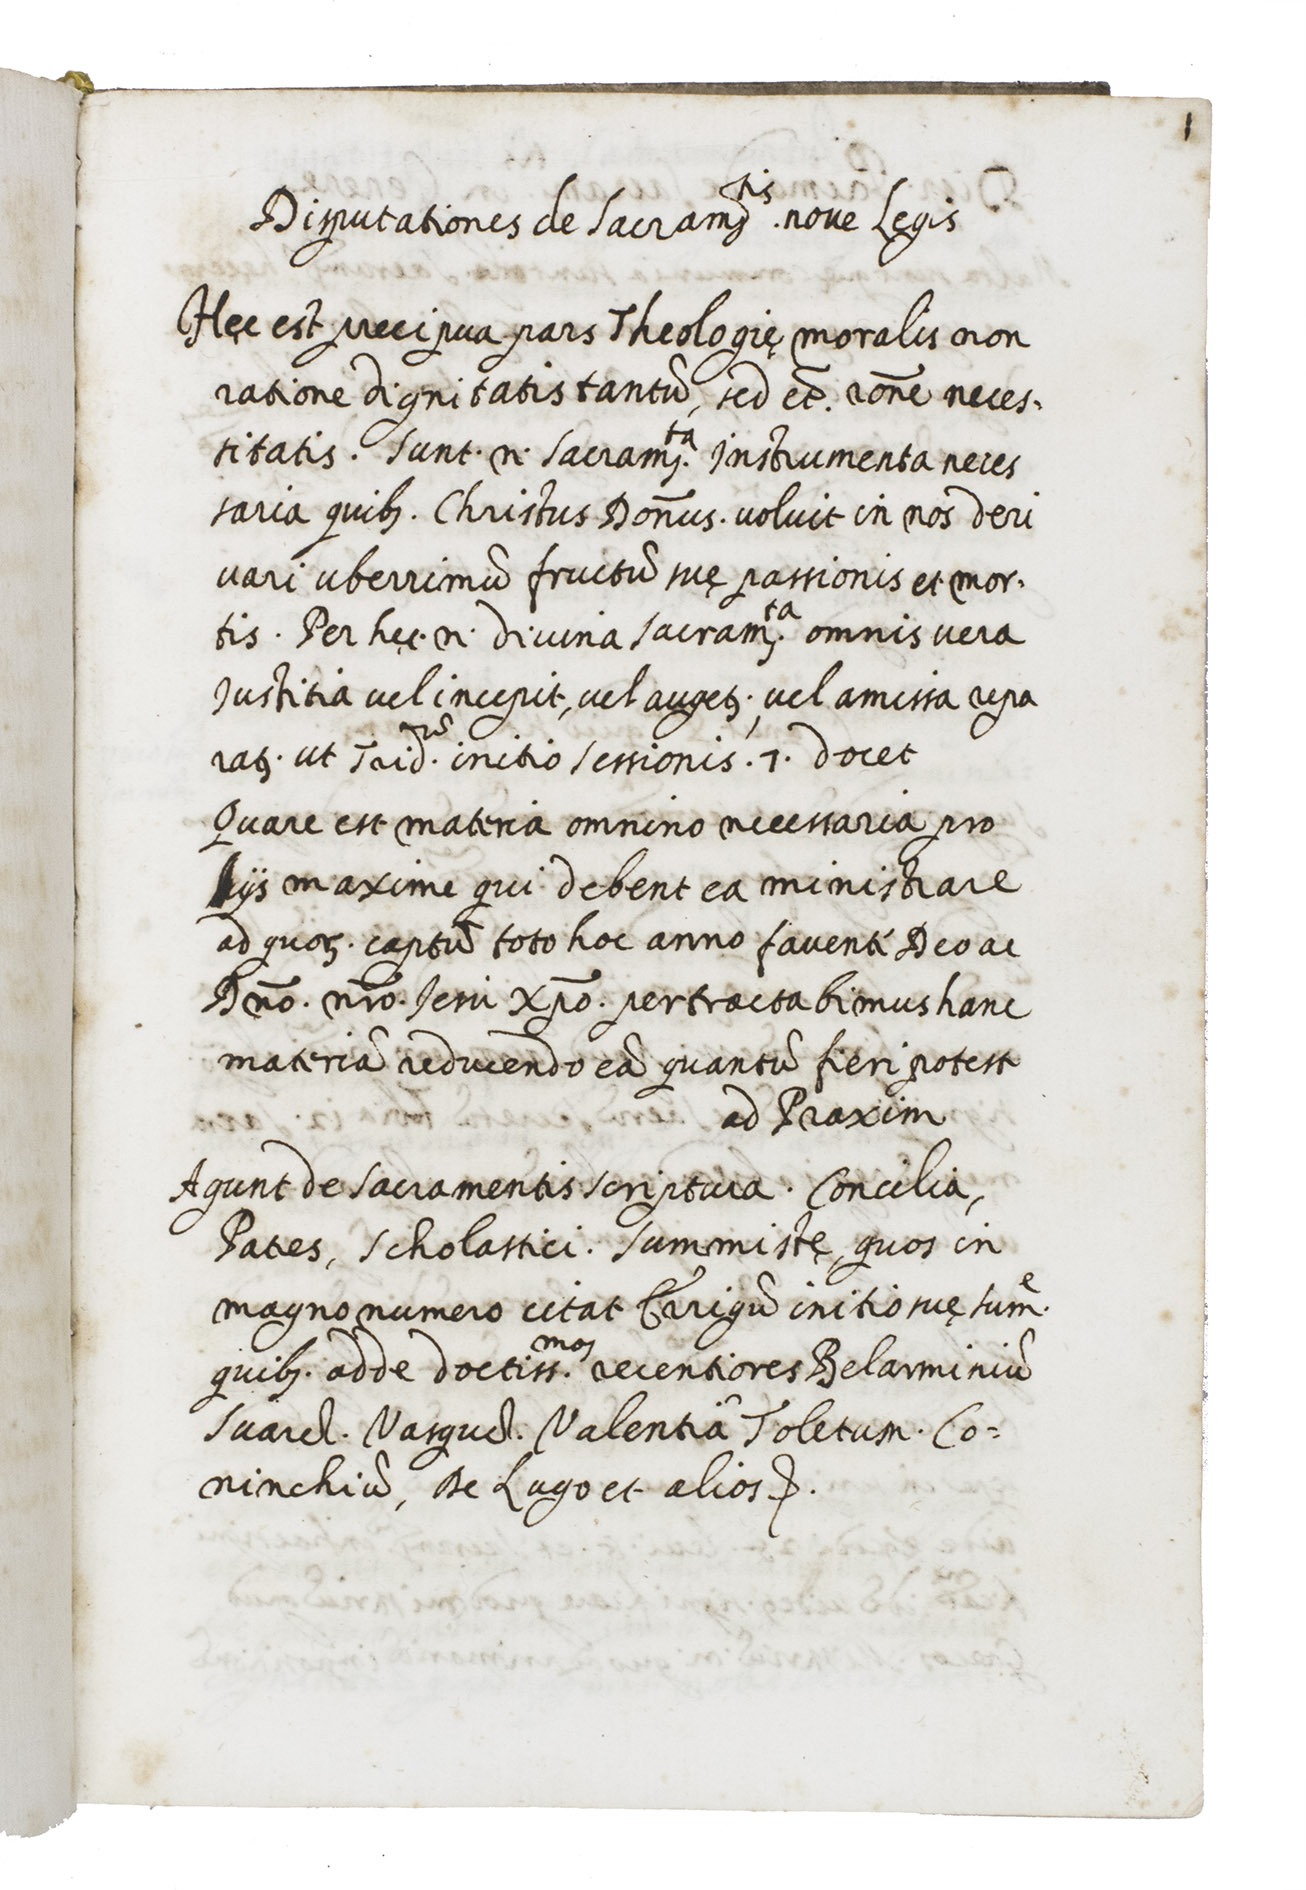 1
Disputationes de Sacram.tis noue Legis
Hęc est precipua pars Theologię moralis non
ratione dignitatis tantū, sed et̄. rōne neces-
sitatis. Sunt. n. Sacram.ta Instrumenta neces
saria quib9. Christus Doñus. uoluit in nos deri
uari uberrimū fructū suę passionis et mor-
tis. Per hęc. n. diuina Sacram.ta omnis uera
Justitia uel incepit, uel auget9., uel amissa repa
rat9. ut Trid.nū initio sessionis. 7. docet
Quare est materia omnino necessaria pro
ijs maxime qui debent ea ministrare
ad quor9. captū toto hoc anno fauenti Deo ac
Dn̄o. nr̄o. Jesu Xp̄o. pertractabimus hanc
materiā reducendo eā quantū fieri potest
ad Praxim
Agunt de Sacramentis scriptura. Concilia,
Pates, Scholastici. Summistę, quos in
magno numero citat initio suę sum.e
quib9. adde doctiss.mos recentiores Belarminiū
Suared. Vasqued. Valentiā Toletum. Co=
ninchiū, De Lugo et alios